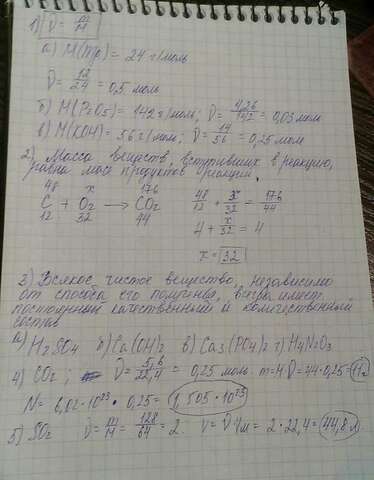 1) ν = m/M
а) M(Mg) = 24 г/моль
ν = 12/24 = 0,5 моль
б) M(P2O5) = 142 г/моль; ν = 4,26/142 = 0,03 моль
в) M(KOH) = 56 г/моль; ν = 14/56 = 0,25 моль
2) Масса веществ, вступивших в реакцию,
равна масс продуктов реакции.
48 x 176
C + O2 → CO2 48/12 + x/32 = 176/44
12 32 44
4 + x/32 = 4
x = 32
3) Всякое чистое вещество, независимо
от способа его получения, всегда имеет
постоянный качественный и количественный
состав
а) H2SO4 б) Ca(OH)2 в) Ca3(PO4)2 г) H4N2O3
4) CO2; ν = 5,6/22,4 = 0,25 моль. m = M·ν = 44·0,25 = 11 г
N = 6,02·10²³·0,25 = 1,505·10²³
5) SO2 ν = m/M = 128/64 = 2. V = ν·Vм = 2·22,4 = 44,8 л.